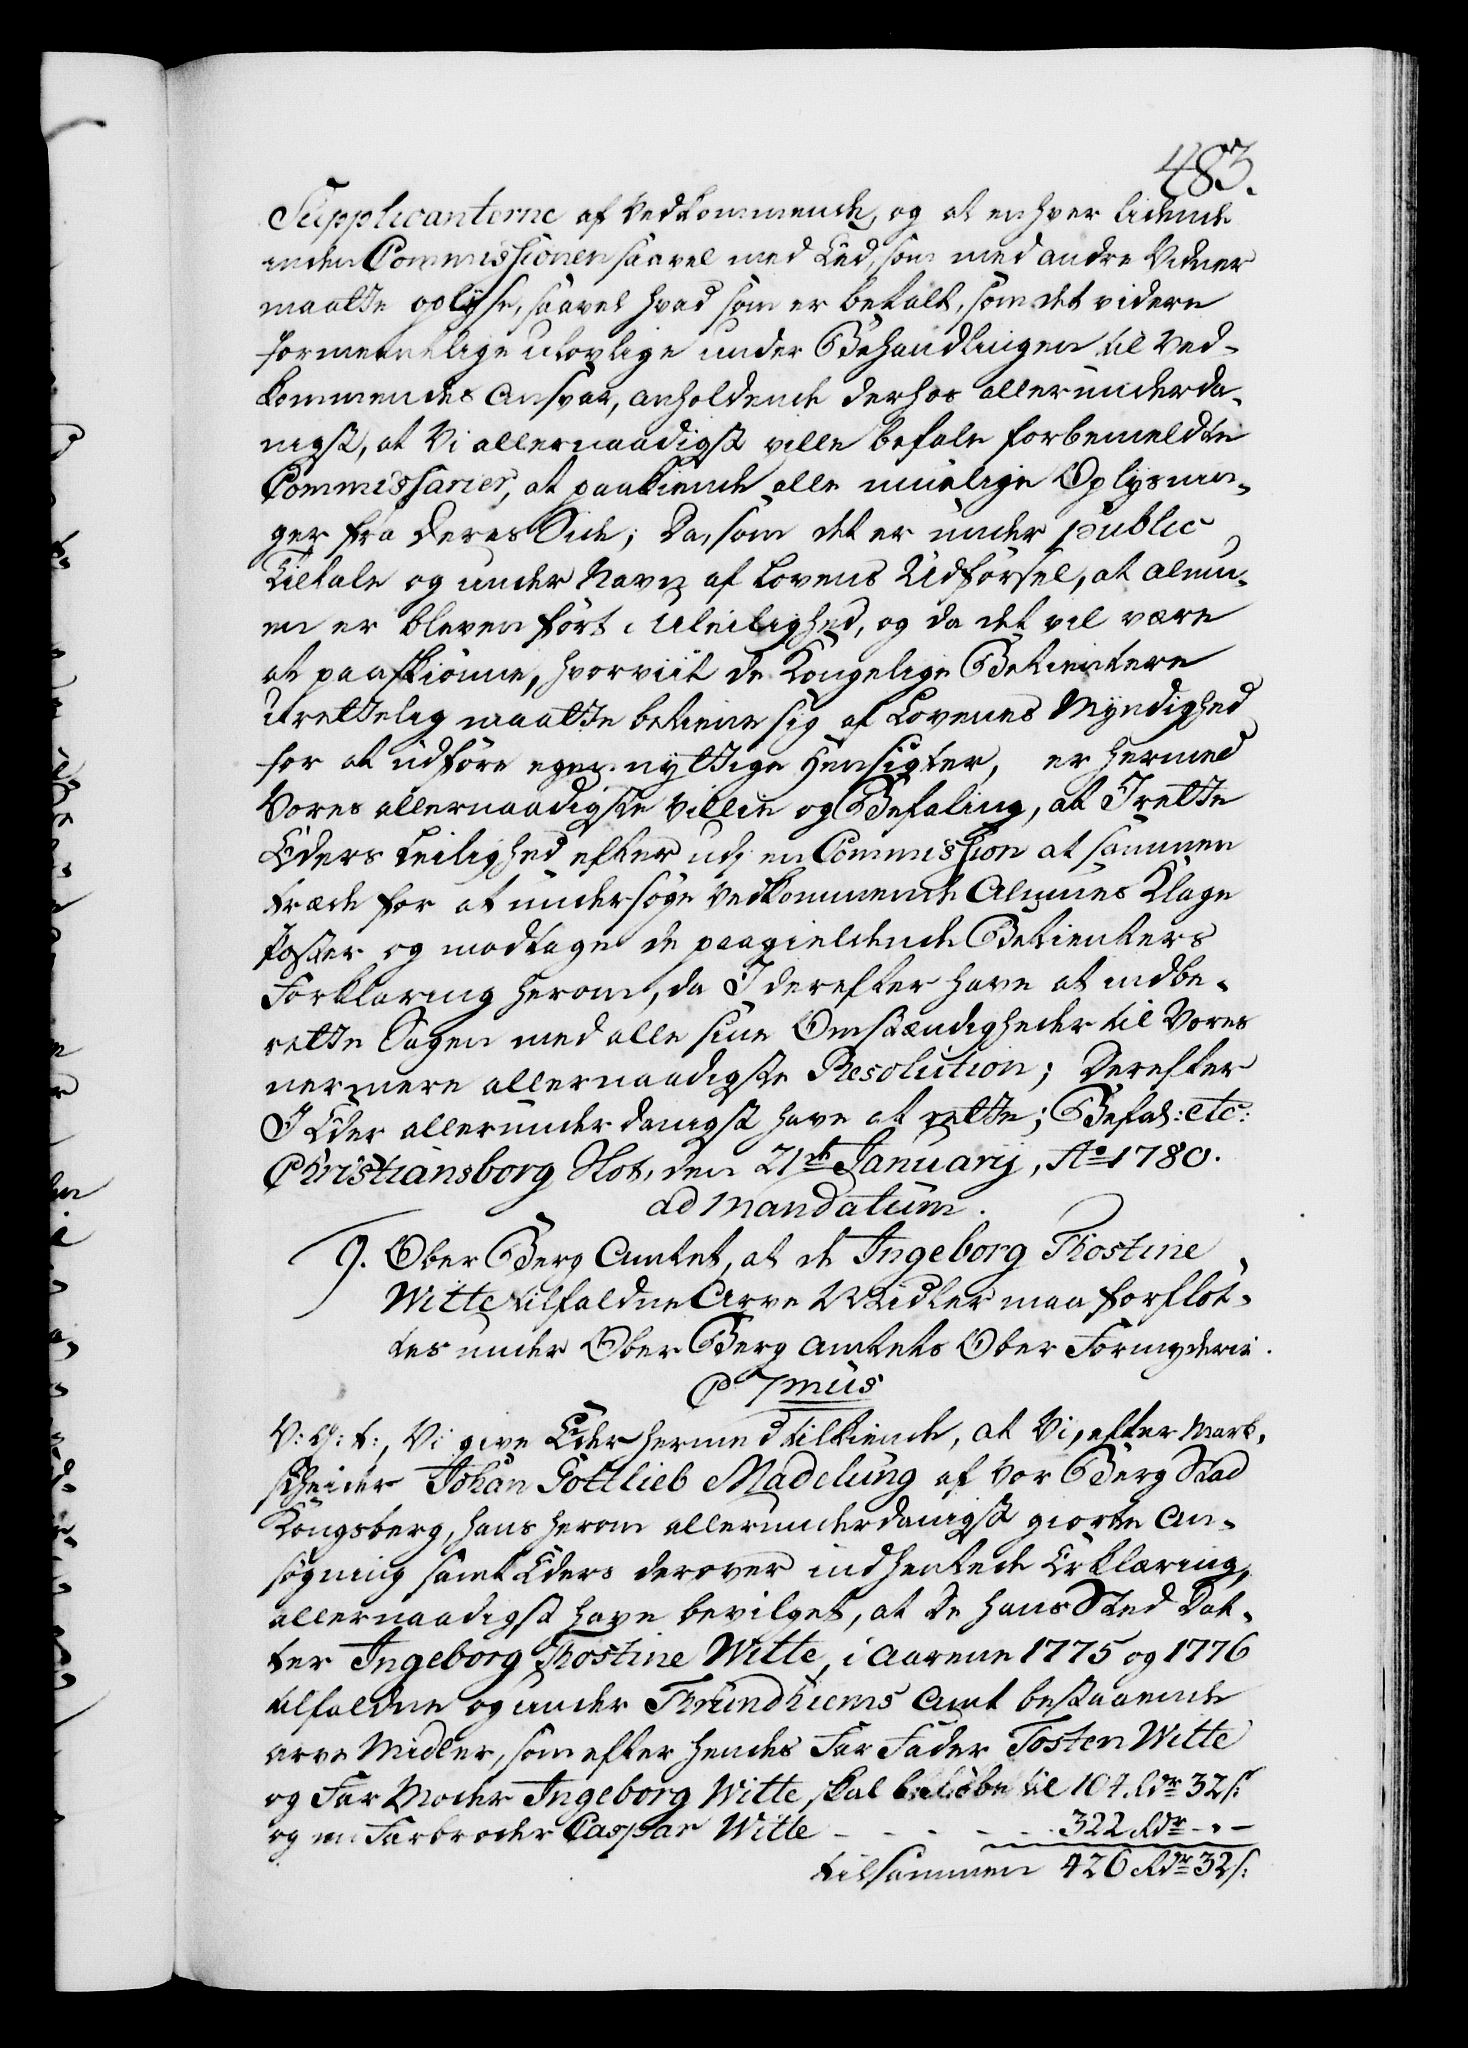 483.
Supplicanterne af Vedkommende, og at enhver lidende
inden Commissionen saavel med Eed, som med andre Vidner
maatte oplyse, saavel hvad som er betalt, som det videre
formeentlige ulovlige under Behandlingen til Ved-
kommendes Ansvar, anholdende derhos allerunderda-
nigst, at Vi allernaadigst ville befale forbemeldte
Commissarier, at paakiende alle muelige Oplysnin-
ger fra deres Side; Da, som det er under public
Tiltale og under Navn af Lovens Udførsel, at Almu-
en er bleven ført i Uleilighed, og da det vil være
at paaskiønne, hvorviit de Kongelige Betientere
urettelig maatte betiene sig af Lovenes Myndighed
for at udføre egennyttige Hensigter, er hermed
Vores allernaadigste Villie og Befaling, at I rette
Eders Leilighed efter udj en Commission at sammen
træde for at undersøge Vedkommende Almues Klage
Poster og modtage de paagieldende Betienters
Forklaring herom, da I derefter have at indbe-
rette Sagen med alle sine Omstændigheder til Vores
nermere allernaadigste Resolution; Derefter
I Eder allerunderdanigst have at rette; Befal: etc:
Christiansborg Slot, den 21de Januarij, Ao 1780.
ad mandatum.
9. Ober Berg Amtet, at de Ingeborg Thostine
Witte tilfaldne Arve Midler maa forflöt-
tes under Ober Berg Amtets Ober Formynderie.
C 7mus
V: G: t:, Vi give Eder hermed tilkiende, at Vi, efter Mark-
scheider Johan Gottlieb Madelung af Vor Berg Stad
Kongsberg, hans herom allerunderdanigst giorte An-
søgning samt Eders derover indhentede Erklæring,
allernaadigst have bevilget, at de hans Sted Dat-
ter Ingeborg Thostine Witte, i Aarene 1775 og 1776
tilfaldne og under Thrundhiems Amt bestaaende
Arve Midler, som efter hendes Far Fader Tosten Witte
og Far Moder Ingeborg Witte, skal beløbe til 104. Rdr 32 s:
og en Farbroder Caspar Witte - - - - - - 322 Rdr - " -
tilsammen 426 Rdr 32 s: